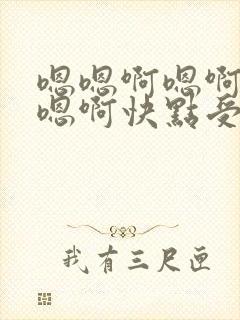 嗯嗯啊嗯啊
嗯啊快點受
我有三尺匣